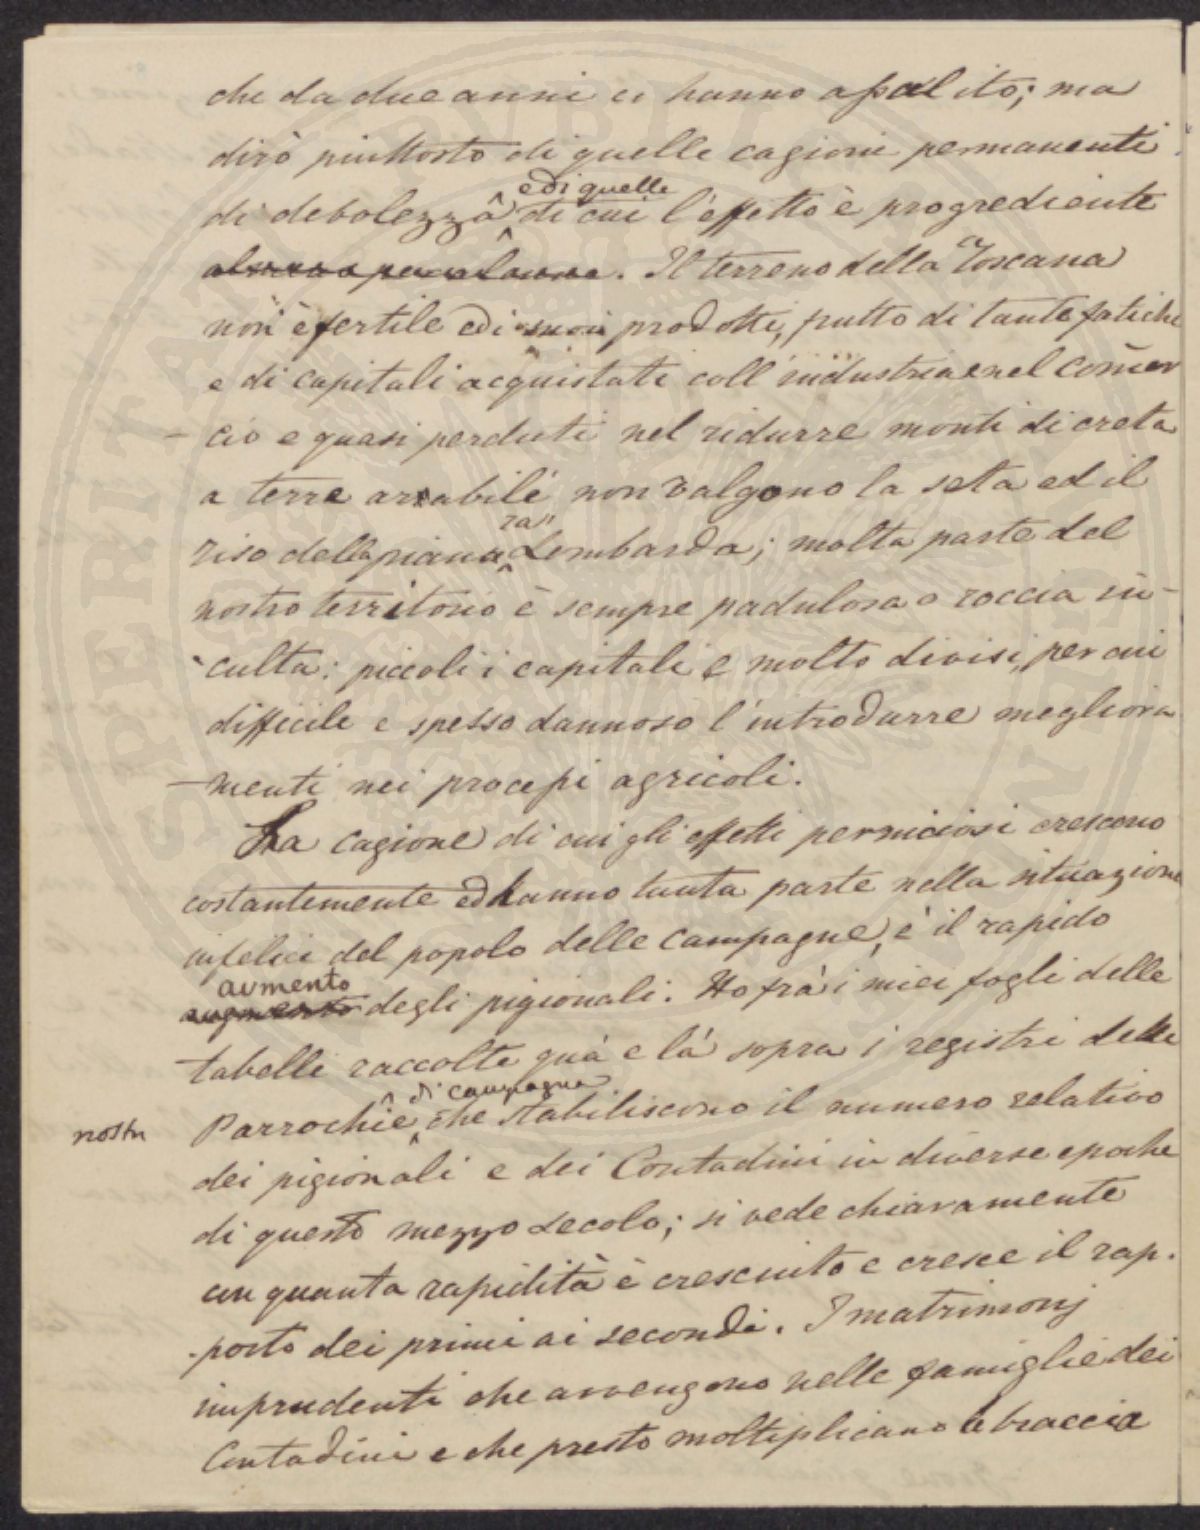 che da due anni ci hanno assalito; ma
dirò piuttosto di quelle cagioni permanenti
di debolezza e di quelle di cui l'effetto è progrediente
. Il terreno della Toscana
non è fertile ed i suoi prodotti, frutto di tante fatiche
e di capitali acquistati coll'industria e nel com̃er
- cio e quasi perduti nel ridurre monti di creta
a terre arabili non valgono la seta ed il
riso della pianura Lombarda; molta parte del
nostro territorio è sempre padulosa o roccia in-
culta: piccoli i capitali e molto divisi, per cui
difficile e spesso dannoso l'introdurre megliora
-menti nei processi agricoli.
La cagione di cui gli effetti perniciosi crescono
costantemente ed hanno tanta parte nella situazione
infelice del popolo delle campagne, è il rapido
aumento
augmento degli pigionali. Ho frà i miei fogli delle
tabelle raccolte quà e là sopra i registri delle
nostre Parrochie di campagna che stabiliscono il numero relativo
dei pigionali e dei Contadini in diverse epoche
di questo mezzo secolo; si vede chiaramente
con quanta rapidità è cresciuto e cresce il rap-
-porto dei primi ai secondi. I matrimonj
imprudenti che avvengono nelle famiglie dei
Contadini e che presto moltiplicano le braccia
SPERITAT PUBLICAE